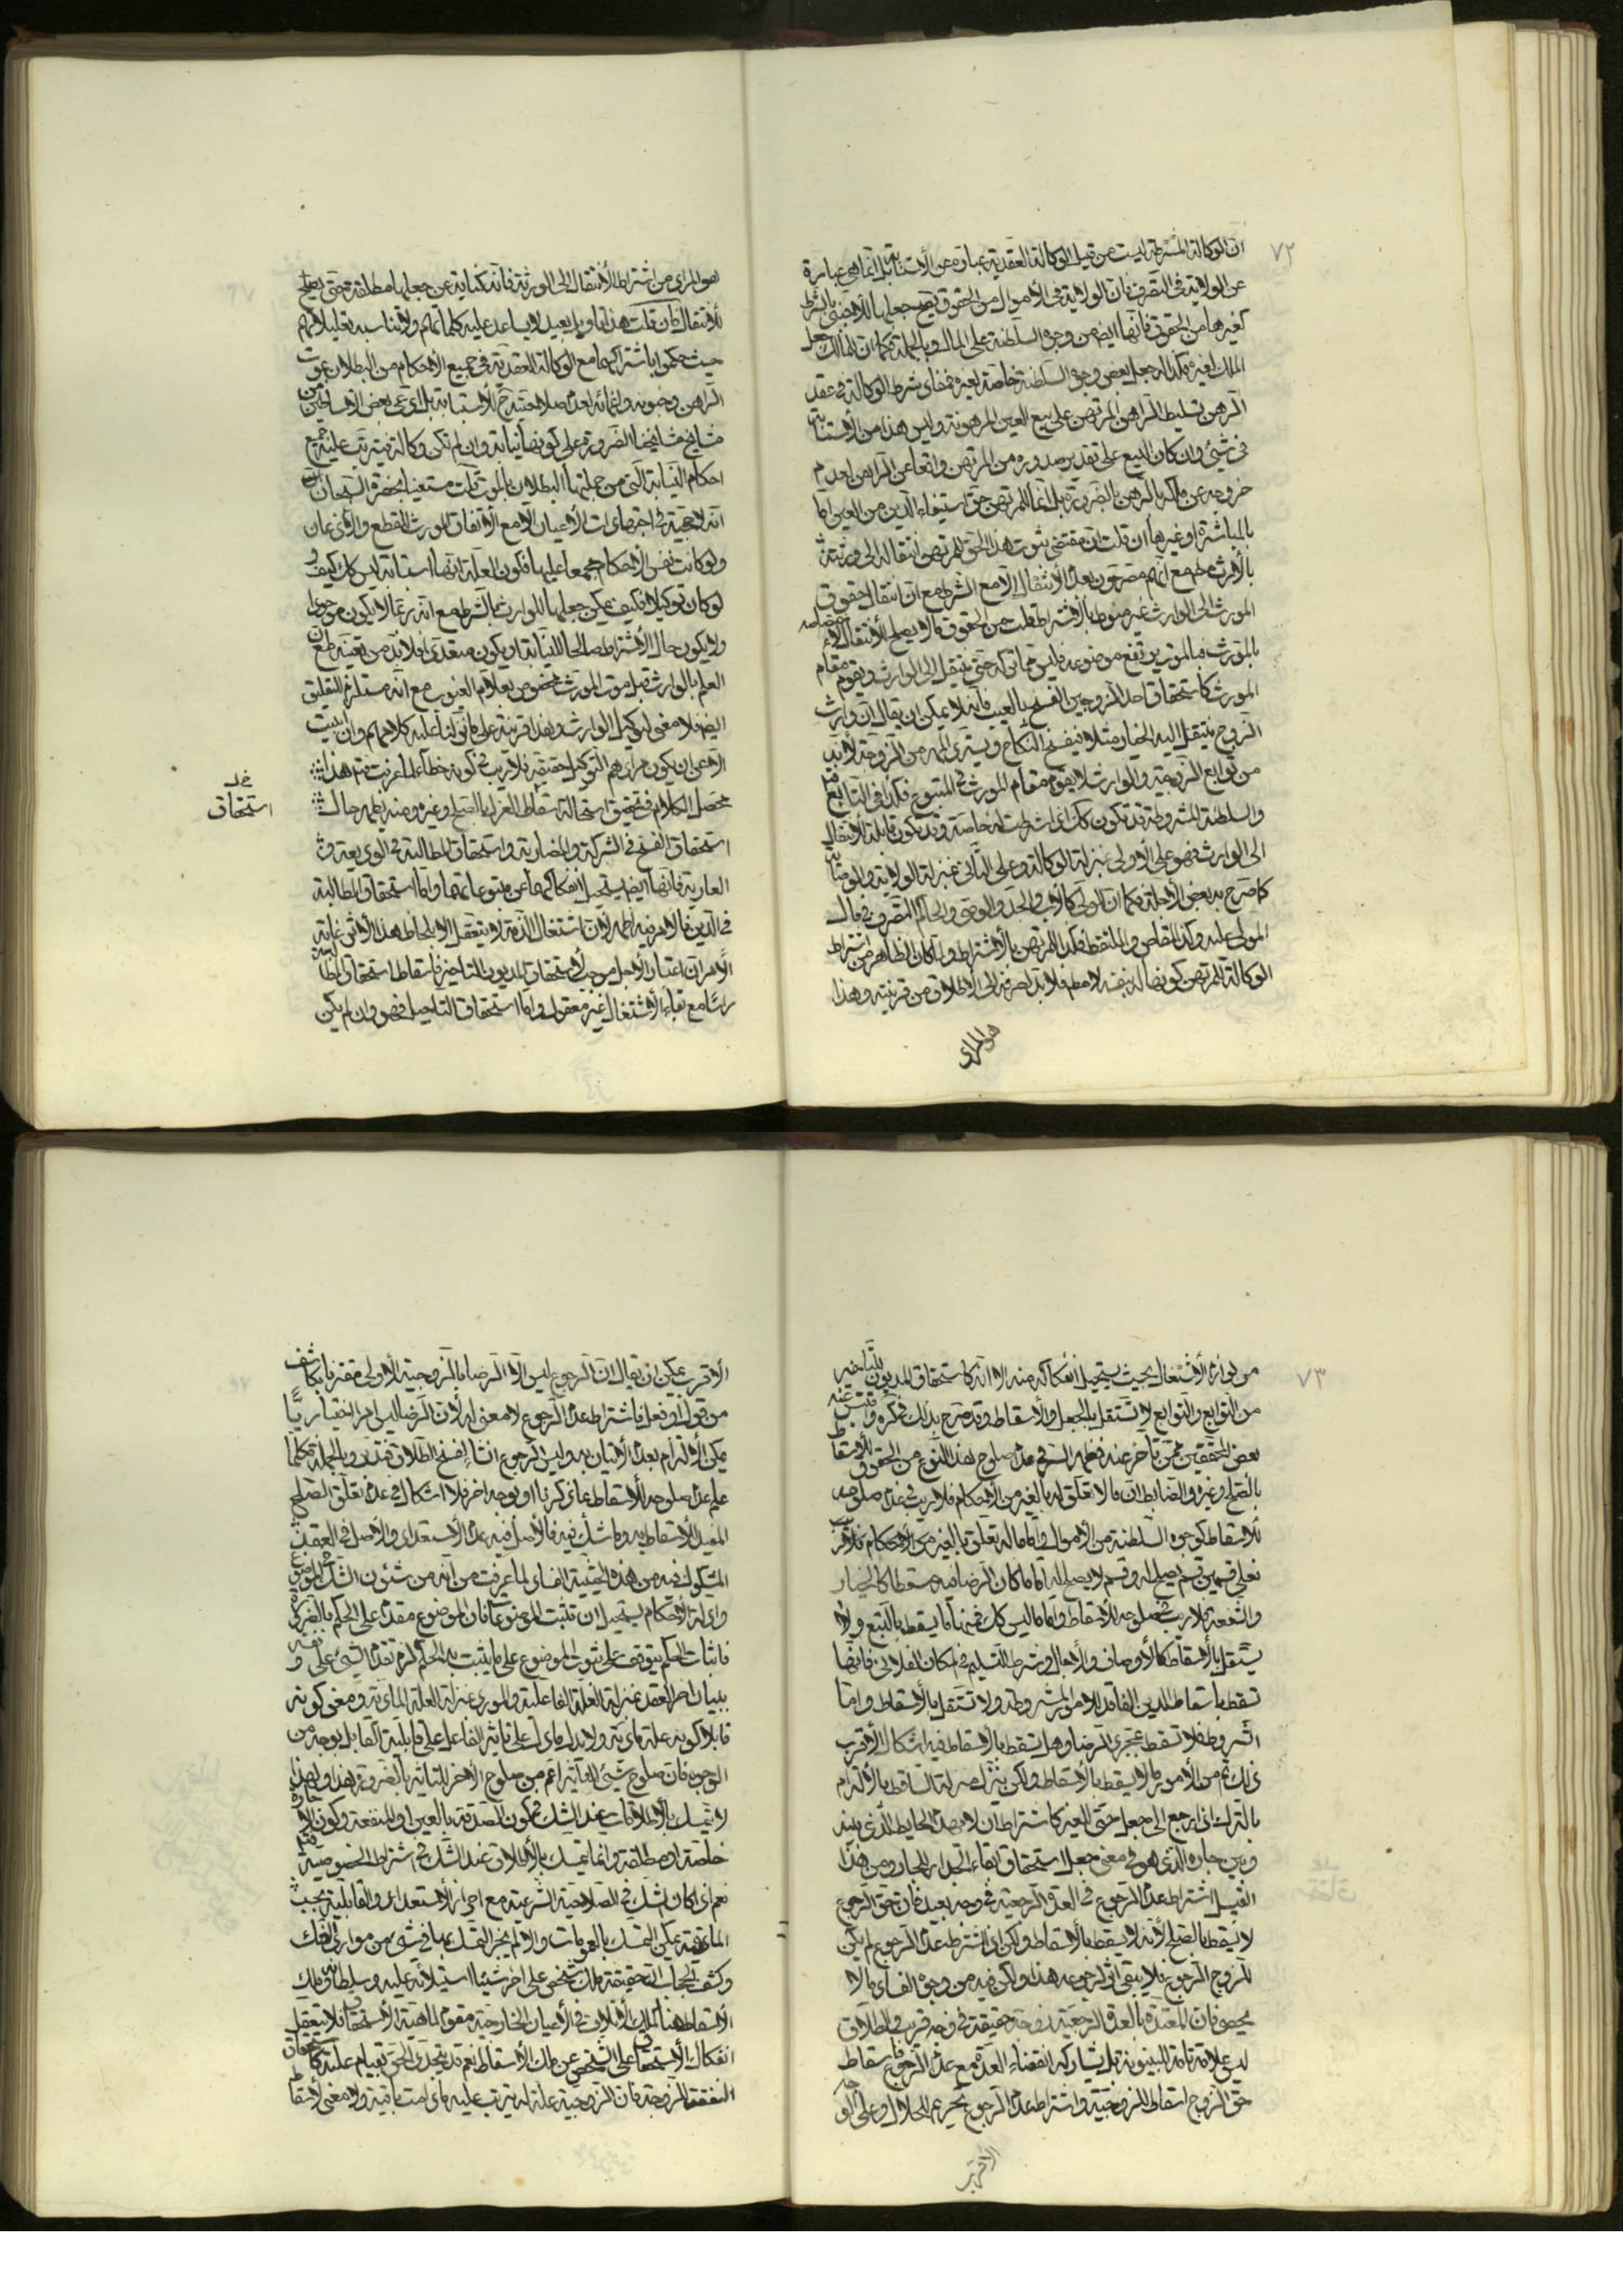 ٧٢
ان الوكالة المشترطة ليست من قبيل الوكالة العقدية عبارة عن الاستنابة بل انما هى عبارة
عن الولاية فى التصرف فان الولاية فى الاموال من الحقوق يصح جعلها للاجنبى بالشرط
كغيرها من الحقوق فانها ايضا من وجوه السلطنة على المال وبالجملة فكما ان للمالك جعل
الملك لغيره فكذا له جعل بعض وجوه السلطنة خاصة لغيره فمفاد شرط الوكالة فى عقد
الرهن تسليط الراهن المرتهن على بيع العين المرهونة وليس هذا من الاستنابة
فى شئ وان كان البيع على تقدير صدوره من المرتهن واقعا عن الراهن لعدم
خروجه عن ملكه بالرهن بالضرورة بل انما للمرتهن حق استيفاء الدين من العين اما
بالمباشرة او غيرها ان قلت ان مقتضى ثبوت هذا الحق للمرتهن انتقاله الى ورثته
بالارث مع انهم مصرحون بعدم الانتقال الا مع الشرط مع ان انتقال حقوق
المورث الى الوارث غير منوط بالاشتراط قلت من الحقوق ما لا يصلح للانتقال لاختصاصه
بالمورث فبالموت يرتفع موضوعه فليس مما تركه حتى ينتقل الى الوارث ويقوم مقام
المورث كاستحقاق احد الزوجين الفسخ بالعيب فانه لا يمكن ان يقال ان وارث
الزوج ينتقل اليه الخيار مثلا فيفسخ النكاح ويسترد المهر من الزوجة لانه
من توابع الزوجية والوارث لا يقوم مقام المورث فى المتبوع فكذا فى التابع
والسلطنة المشروطة قد تكون كك اى اشترطت له خاصة وقد تكون قابلة للانتقال
الى الوارث فهو على الاولى بمنزلة الوكالة وعلى الثانى بمنزلة الولاية والوصاية
كما صرح به بعض الاجلة فكما ان للولى كالاب والجد والوصى والحاكم التصرف فى مال
المولى عليه وكذا المقاص والملتقط فكذا للمرتهن بالاشتراط ولما كان الظاهر من اشتراط
الوكالة للمرتهن كونها له بنفسه لا مطلقا فلا بد لصرفه الى الاطلاق من قرينة وهذا
هو المراد
هو المراد من اشتراط الانتقال الى الورثة فانه كناية عن جعلها مطلقة حتى يصلح
للانتقال فان قلت هذا تاويل بعيد لا يساعد عليه كلماتهم ولا يناسبه تعليلاتهم
حيث حكموا باشتراكها مع الوكالة العقدية فى جميع الاحكام من البطلان بموت
الراهن وجنونه واغمائه لعدم صلاحيته ح للاستنابة بل ادعى بعض الاساطين من
مشايخ مشايخنا الضرورة على كونها نيابة وان لم تكن وكالة فيترتب عليه جميع
احكام النيابة التى من جملتها البطلان بالموت قلت مستعينا بحضرة السبحان
انه لا حجية فى اجتهادات الاعيان الا مع الاتفاق المورث للقطع والاذعان
ولو كانت نفس الاحكام مجمعا عليها فكون العلة انها استنابة ليس كك كيف و
لو كان توكيلا فكيف يمكن جعلها للوارث بالشرط مع انه ربما لا يكون موجودا
ولا يكون حال الاشتراط صالحا للنيابة او يكون متعددا فلا بد من تعيينه مع ان
العلم بالوارث قبل موت المورث مخصوص بعلام الغيوب مع انه مستلزم للتعليق
ايضا فلا معنى لتوكيل الوارث وهذا قرينة على ما نزلنا عليه كلامهم وان ابيت
الا عن ان يكون مرادهم التوكيل حقيقة فلا ريب فى كونه خطأ لما عرفت ثم هذا
محصل الكلام فى تحقيق استحالة اسقاط العزل بالصلح وغيره ومنه يظهر حال
استحقاق الفسخ فى الشركة والمضاربة واستحقاق المطالبة فى الوديعة و
العارية فانها ايضا يستحيل انفكاكهما عن متبوعاتهما واما استحقاق المطالبة
فى الدين فالامر فيه اظهر لان اشتغال الذمة لا يتعقل الا بلحاظ هذا الاثر غاية
الامر ان اعتبار الاجل موجب لاستحقاق المديون للتاخير فاسقاط استحقاق المطالبة
راسا مع بقاء الاشتغال غير معقول واما استحقاق التاجيل فهو وان لم يكن
استحقاق
٧٣
من لوازم الاشتغال بحيث يستحيل انفكاكه منه الا انه كاستحقاق المديون للتاخير
من التوابع والتوابع لا تستقل بالجعل والاسقاط وقد صرح بذلك فى ذكره واقتبس عنه
بعض المحققين ممن تاخر عنه فظهر السر فى عدم صلوح هذا النوع من الحقوق للاسقاط
بالصلح وغيره والضابط ان ما لا تعلق له بالغير من الاحكام فلا ريب فى عدم صلوحه
للاسقاط كوجوه السلطنة من الاموال واما ما له تعلق بالغير من الاحكام فالاقرب
فعلى قسمين قسم يصلح له وقسم لا يصلح له اما ما كان الرضا منه مسقطا كالخيار
والشفعة فلا ريب فى صلوحه للاسقاط واما ما ليس كك فمنها ما يسقط بالتبع ولا
يستقل بالاسقاط كالاوصاف والاجال وشرط التسليم فى مكان الفلانى فانها
تسقط باسقاط الدين الفاقد للامور المشروطة ولا تستقل بالاسقاط واما
الشروط فلا تسقط بمجرد الرضا وهل تسقط بالاسقاط فيه اشكال الاقرب
ذلك ثم من الامور ما لا يسقط بالاسقاط ولكن ينزل منزلة الساقط بالالتزام
بالترك اذا رجع الى جعل حق للغير كاشتراط ان لا يهدم الحايط الذى بينه
وبين جاره الذى هو فى معنى جعل استحقاق ابقاء الجدار للجار ومن هذا
القبيل اشتراط عدم الرجوع فى العدة الرجعية فى وجه بعيد فان حق الرجوع
لا يسقط بالصلح لانه لا يسقط بالاسقاط ولكن اذا اشترط عدم الرجوع لم يكن
للزوج الرجوع فلا يبقى اثر لرجوعه هذا ولكن فيه من وجوه الفساد ما لا
يحصى فان المعتدة بالعدة الرجعية زوجة حقيقة فى وجه قريب والطلاق
ليس علة تامة للبينونة بل يشاركه انقضاء العدة مع عدم الرجوع فاسقاط
حق الزوج اسقاط للزوجية واشتراط عدم الرجوع تحريم للحلال وعلى الوجه
الاقرب
الاقرب يمكن ان يقال ان الرجوع ليس الا الرضا بالزوجية الاولى مقترنا بكاشف
من قول او فعل فاشتراط عدم الرجوع لا معنى له لان الرضا ليس امرا اختياريا
يمكن الالتزام بعدم الاتيان به وليس الرجوع انشاء لفسخ الطلاق فتدبر وبالجملة فكلما
علم عدم صلوحه للاسقاط بما ذكرنا او بوجه اخر فلا اشكال فى عدم تعلق الصلح
المفيد للاسقاط به وما شك فيه فالاصل فيه عدم الاستعداد والاصل فى العقد
المشكوك فيه من هذه الحيثية الفساد لما عرفت من انه من شئون الشك فى الموضوع
وادلة الاحكام يستحيل ان تثبت الموضوعات فان الموضوع مقدم على الحكم بالضرورة
فاثبات الحكم يتوقف على ثبوت الموضوع على ما يثبت به الحكم لزم تقدم الشئ على نفسه و
ببيان اخر العقد بمنزلة العلة الفاعلية والمورد بمنزلة العلة المادية ومعنى كونه
قابلا كونه علة مادية ولا يدل ما دل على تاثير الفاعل على قابلية القابل بوجه من
الوجوه فان صلوح شئ للتاثير اعم من صلوح الاخر للتاثر بالضرورة هذا ولهذا
لا يتمسك بالاطلاقات عند الشك فى كون الصدقة بالعين او المنفعة وكون الاجارة
خاصة او مطلقة وانما يتمسك بالاطلاق عند الشك فى اشتراط الخصوصية
نعم اذا كان الشك فى الصلاحية الشرعية مع احراز الاستعداد والقابلية بحسب
المادة يمكن التمسك بالعمومات والا لم يجز التمسك بها فى شئ من موارد الشك
وكشف الحجاب ان حقيقة ملك شخص على اخر شيئا استيلائه عليه وسلطانه وملك
الاسقاط هنا كملك الاتلاف فى الاعيان الخارجية مقوم لماهية الاستحقاق فلا يتعقل
انفكاك الاستحقاق على الشخص عن ملك الاسقاط نعم قد يتجدد الحق بقيام علته كاستحقاق
النفقة للزوجة فان الزوجية علة له يترتب عليه ما دامت باقية ولا معنى لاسقاط